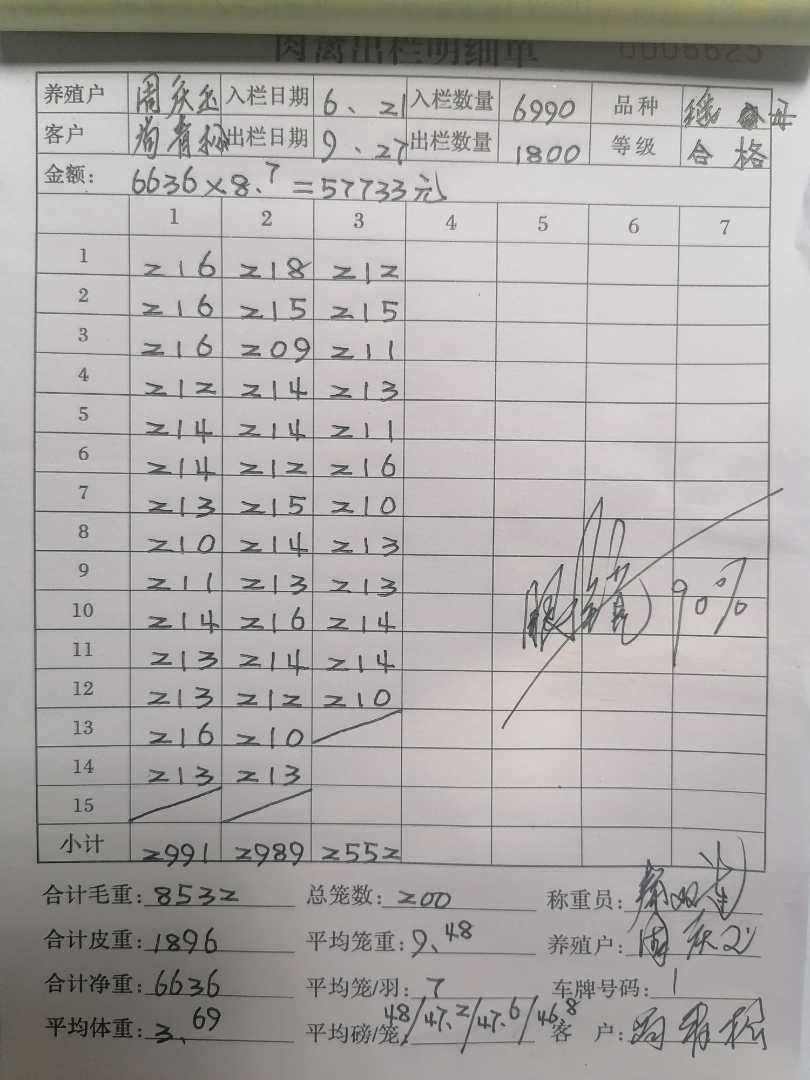 肉禽出栏明细单 0006625
养殖户 周庆玉 入栏日期 6、21 入栏数量 6990 品种
客户 出栏日期 9、27 出栏数量 1800 等级 合格
金额: 6636×8.7=57733元
1 2 3 4 5 6 7
1 216 218 212
2 216 215 215
3 216 209 211
4 212 214 213
5 214 214 211
6 214 212 216
7 213 215 210
8 210 214 213
9 211 213 213
10 214 216 214 90%
11 213 214 214
12 213 212 210
13 216 210
14 213 213
15
小计 2991 2989 2552
合计毛重: 8532 总笼数: 200 称重员:
合计皮重: 1896 平均笼重: 9.48 养殖户: 周庆玉
合计净重: 6636 平均笼/羽: 7 车牌号码: 1
平均体重: 3.69 平均磅/笼: 48/47.2/47.6/46.8 客 户: